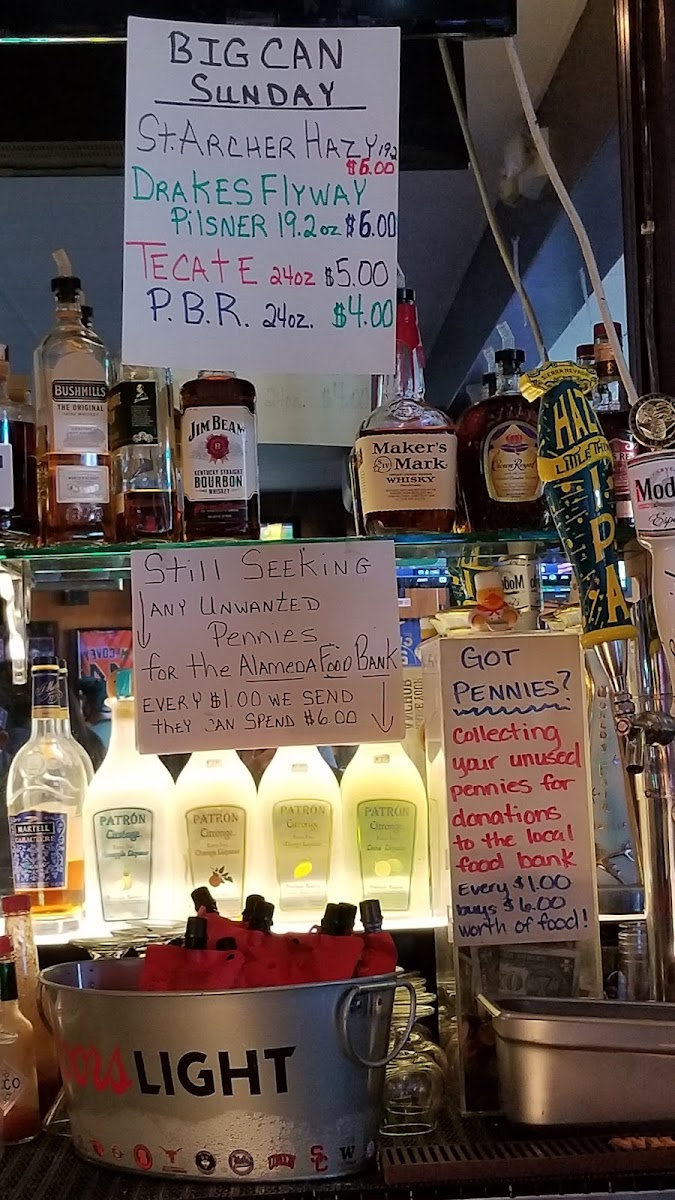 BIG CAN
SUNDAY
ST. ARCHER HAZY 19.2
$6.00
DRAKES FLYWAY
PILSNER 19.2 oz $6.00
TECATE 24oz $5.00
P.B.R. 24oz. $4.00
BUSHMILLS
THE ORIGINAL
JIM BEAM
KENTUCKY STRAIGHT
BOURBON
WHISKEY
Maker's
Mark
WHISKY
Crown Royal
SIERRA NEVADA
HAZY
LITTLE THING
IPA
Mod
Espe
Still SEEKING
ANY UNWANTED
Pennies
for the ALAMEDA FOOD BANK
EVERY $1.00 WE SEND
THEY CAN SPEND $6.00
MCCOVEY
GOT
PENNIES?
Collecting
your unused
pennies for
donations
to the local
food bank
Every $1.00
buys $6.00
worth of food!
MARTELL
PATRÓN
Citrónge
PATRÓN
Citrónge
PATRÓN
Citrónge
PATRÓN
Citrónge
Coors LIGHT
SC
W